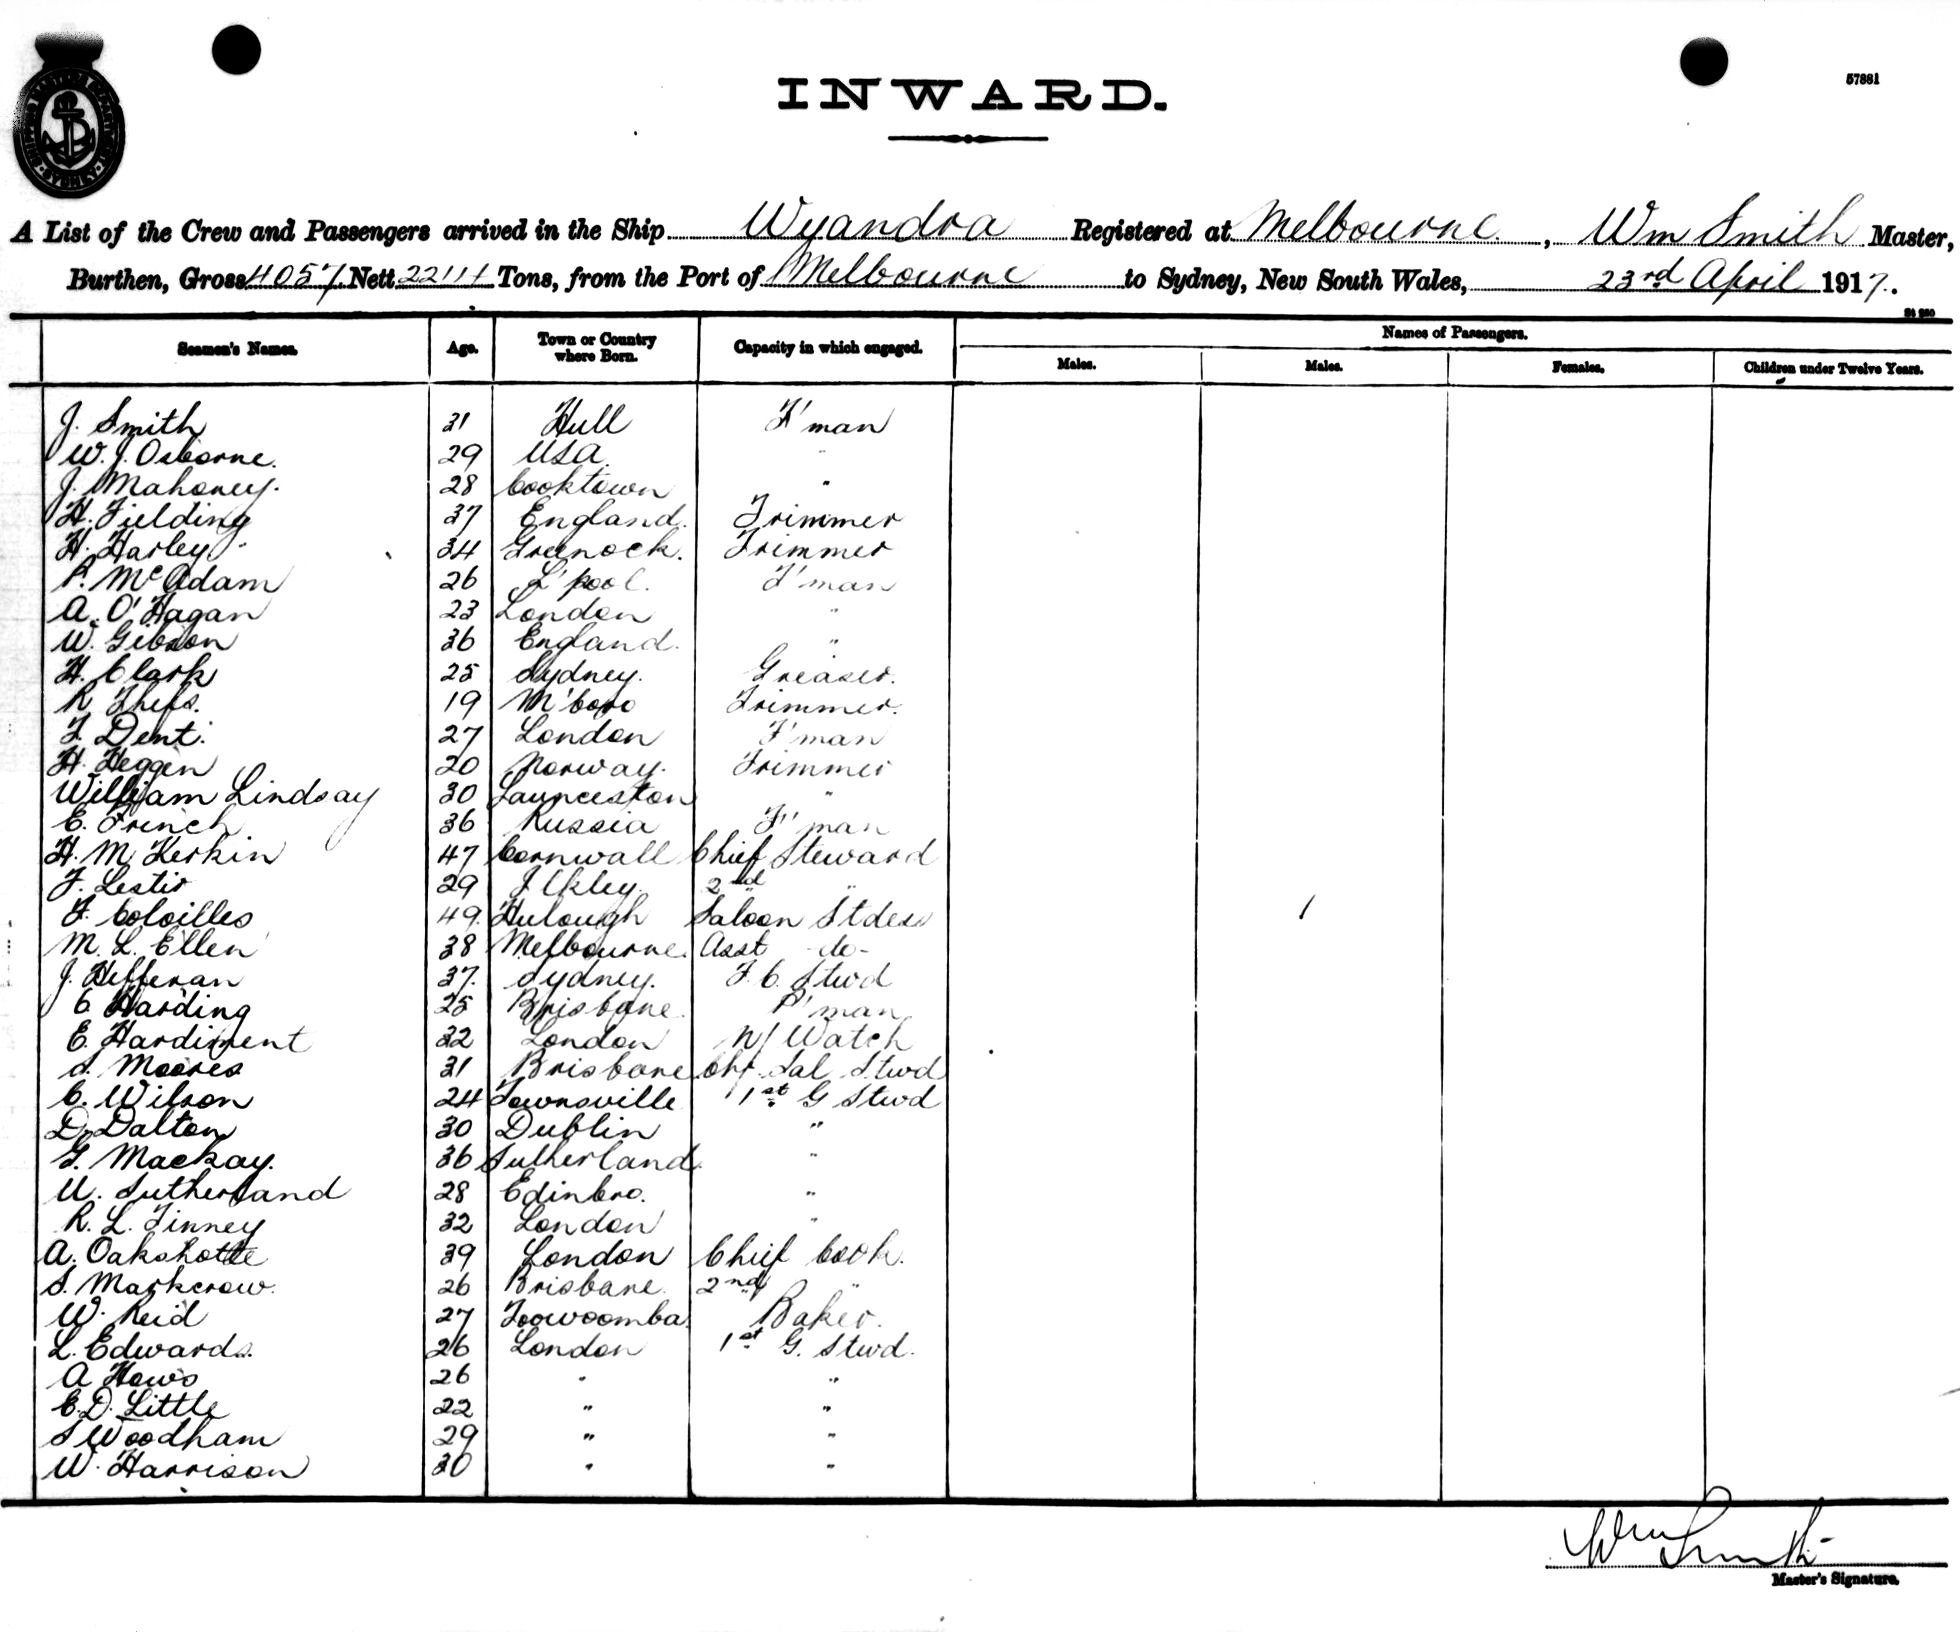 57881
INWARD.
SHIPPING MASTER'S DEPARTMENT SYDNEY
A List of the Crew and Passengers arrived in the Ship Wyandra Registered at Melbourne, Wm Smith Master,
Burthen, Gross 4057 Nett Tons, from the Port of Melbourne to Sydney, New South Wales, 23rd April 1917.
Seamen's Names. Age. Town or Country where Born. Capacity in which engaged. Names of Passengers.
Males. Males. Females. Children under Twelve Years.
J. Smith 31 Hull F'man
W. J. Osborne. 29 USA "
J. Mahoney. 28 Cooktown "
H. Fielding 37 England. Trimmer
H. Harley. 34 Greenock. Trimmer
P. McAdam 26 L'pool. F'man
A. O'Hagan 23 London "
W. Gibson 36 England. "
H. Clark 25 Sydney. Greaser.
R. 19 M'boro Trimmer.
F. Dent. 27 London F'man
H. Heggen 20 Norway. Trimmer
William Lindsay 30 Launceston "
E. French 36 Russia F'man
H. M. Kerkin 47 Cornwall Chief Steward
F. 29 Ilkley. 2nd "
F. 49. Saloon Stdess
M. L. Ellen 38 Melbourne. Asst -do-
J. Hefferan 37. Sydney. F. C. Stwd
C. Harding 25 Brisbane. P'man
E. Hardiment 32 London N/ Watch
S. Moores 31 Brisbane Sal Stwd
C. Wilson 24 Townsville 1st G Stwd
D. Dalton 30 Dublin "
G. Mackay. 36 Sutherland. "
W. Sutherland 28 Edinbro. "
R. L. Finney 32 London "
A. Oakshotte 39 London Chief Cook.
S. Markcrow. 26 Brisbane. 2nd "
W. Reid 27 Toowoomba. Baker.
L. Edwards. 26 London 1st G. Stwd.
A Haws 26 " "
E. D. Little 22 " "
S Woodham 29 " "
W. Harrison 30 " "
Wm Smith
Master's Signature.